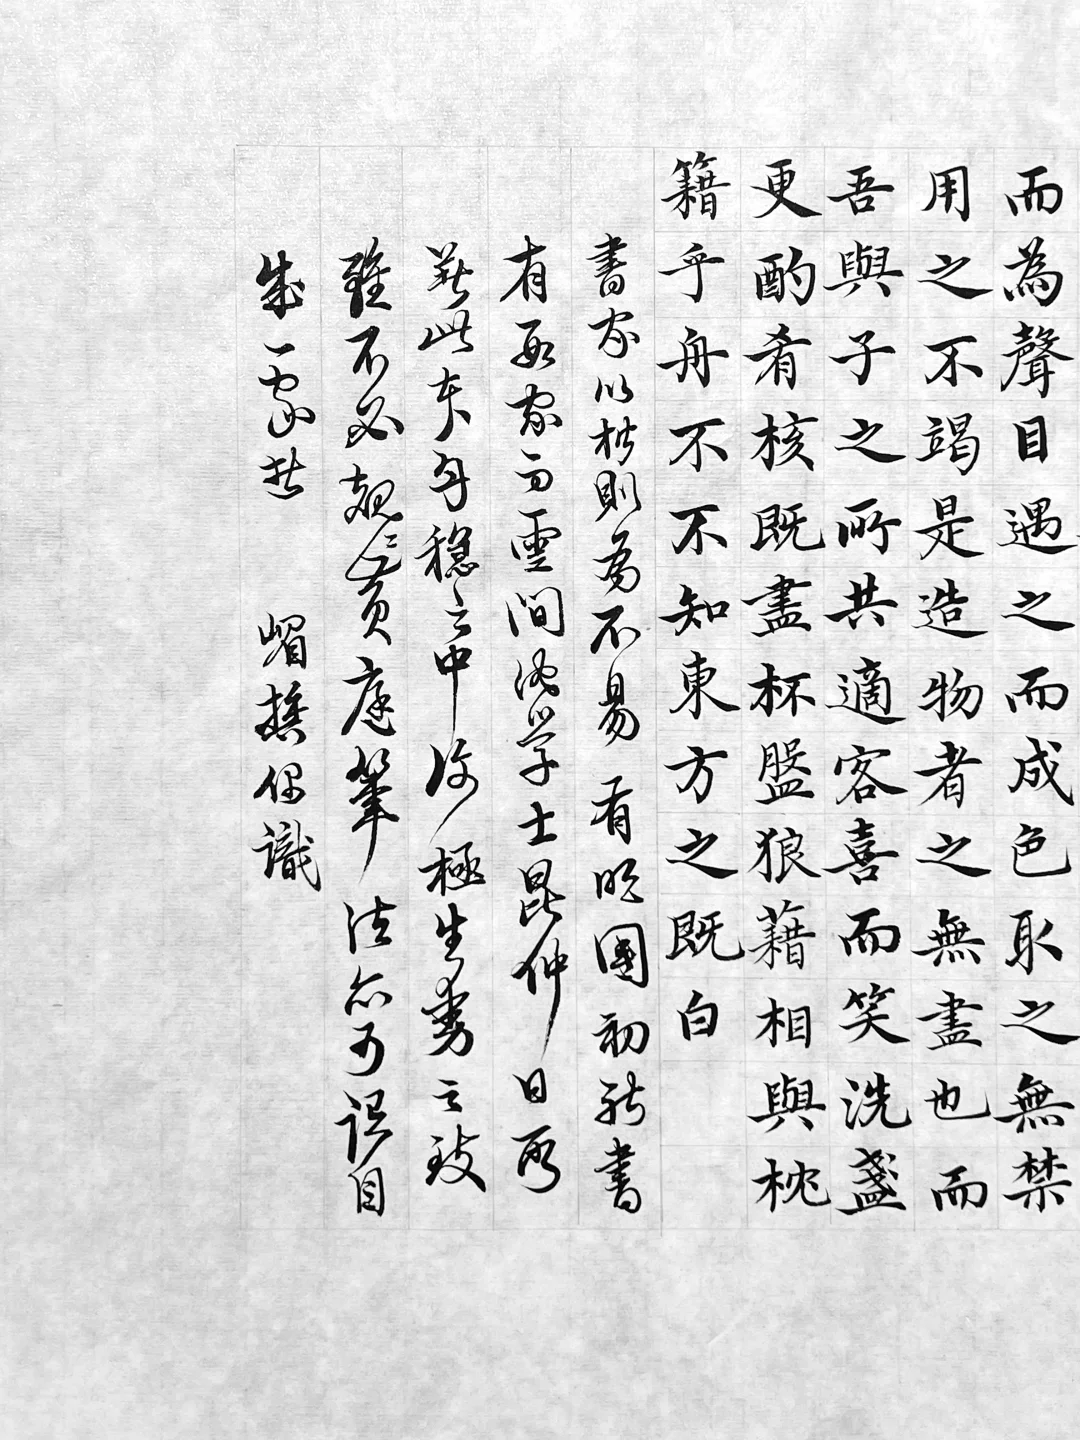 而為聲目遇之而成色取之無禁
用之不竭是造物者之無盡也而
吾與子之所共適客喜而笑洗盞
更酌肴核既盡杯盤狼藉相與枕
籍乎舟不不知東方之既白
書家以楷則為不易有明國初能書
有數家而雲間沈学士昆仲
此本勻穩之中極生動之致
雖不必規〻黃庭筆法亦可謂自
成一家 嵋樵偶識